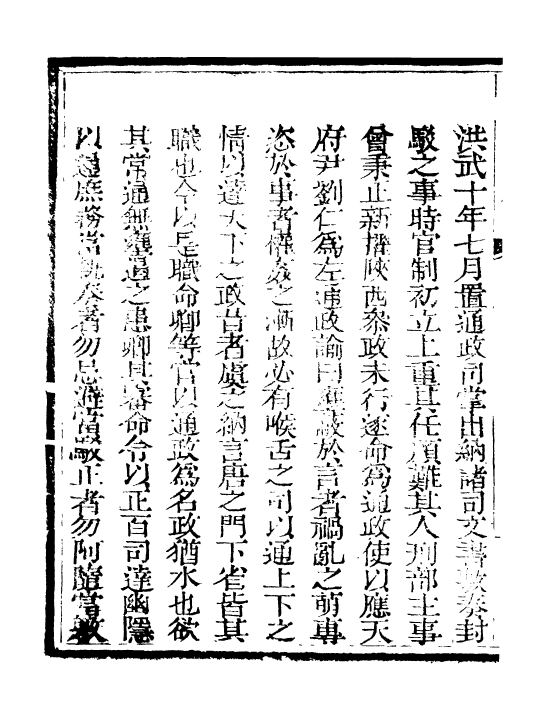 洪武十年七月置通政司掌出納諸司文書敷奏封
駁之事時官制初立上重其任頗難其人刑部主事
曾秉正新擢陝西叅政未行遂命為通政使以應天
府尹劉仁為左通政諭曰壅蔽於言者禍亂之萌專
恣於事者權姦之漸故必有喉舌之司以通上下之
情以達天下之政昔者虞之納言唐之門下省皆其
職也今以是職命卿等官以通政為名政猶水也欲
其常通無壅遏之患卿其審命令以正百司達幽隱
以通庶務當執奏者勿忌避當駁正者勿阿隨當敷